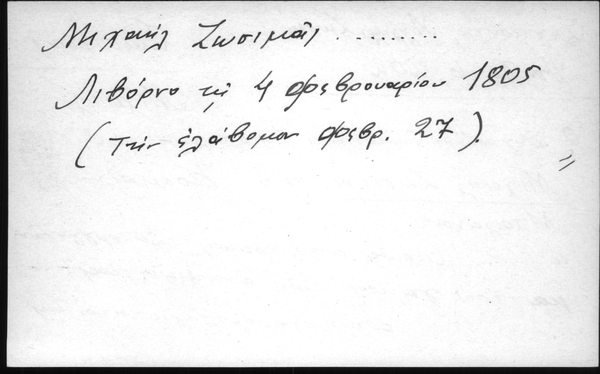 Μιχαήλ Ζωσιμᾶς ........
Λιβόρνο τῇ 4 φεβρουαρίου 1805
(τὴν ἐλάβομεν φεβρ. 27).